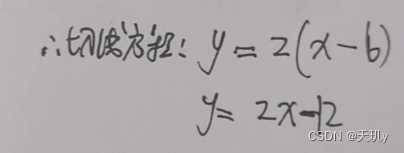 ∴切线方程: y = 2(x-6)
y = 2x-12
CSDN @天玑y